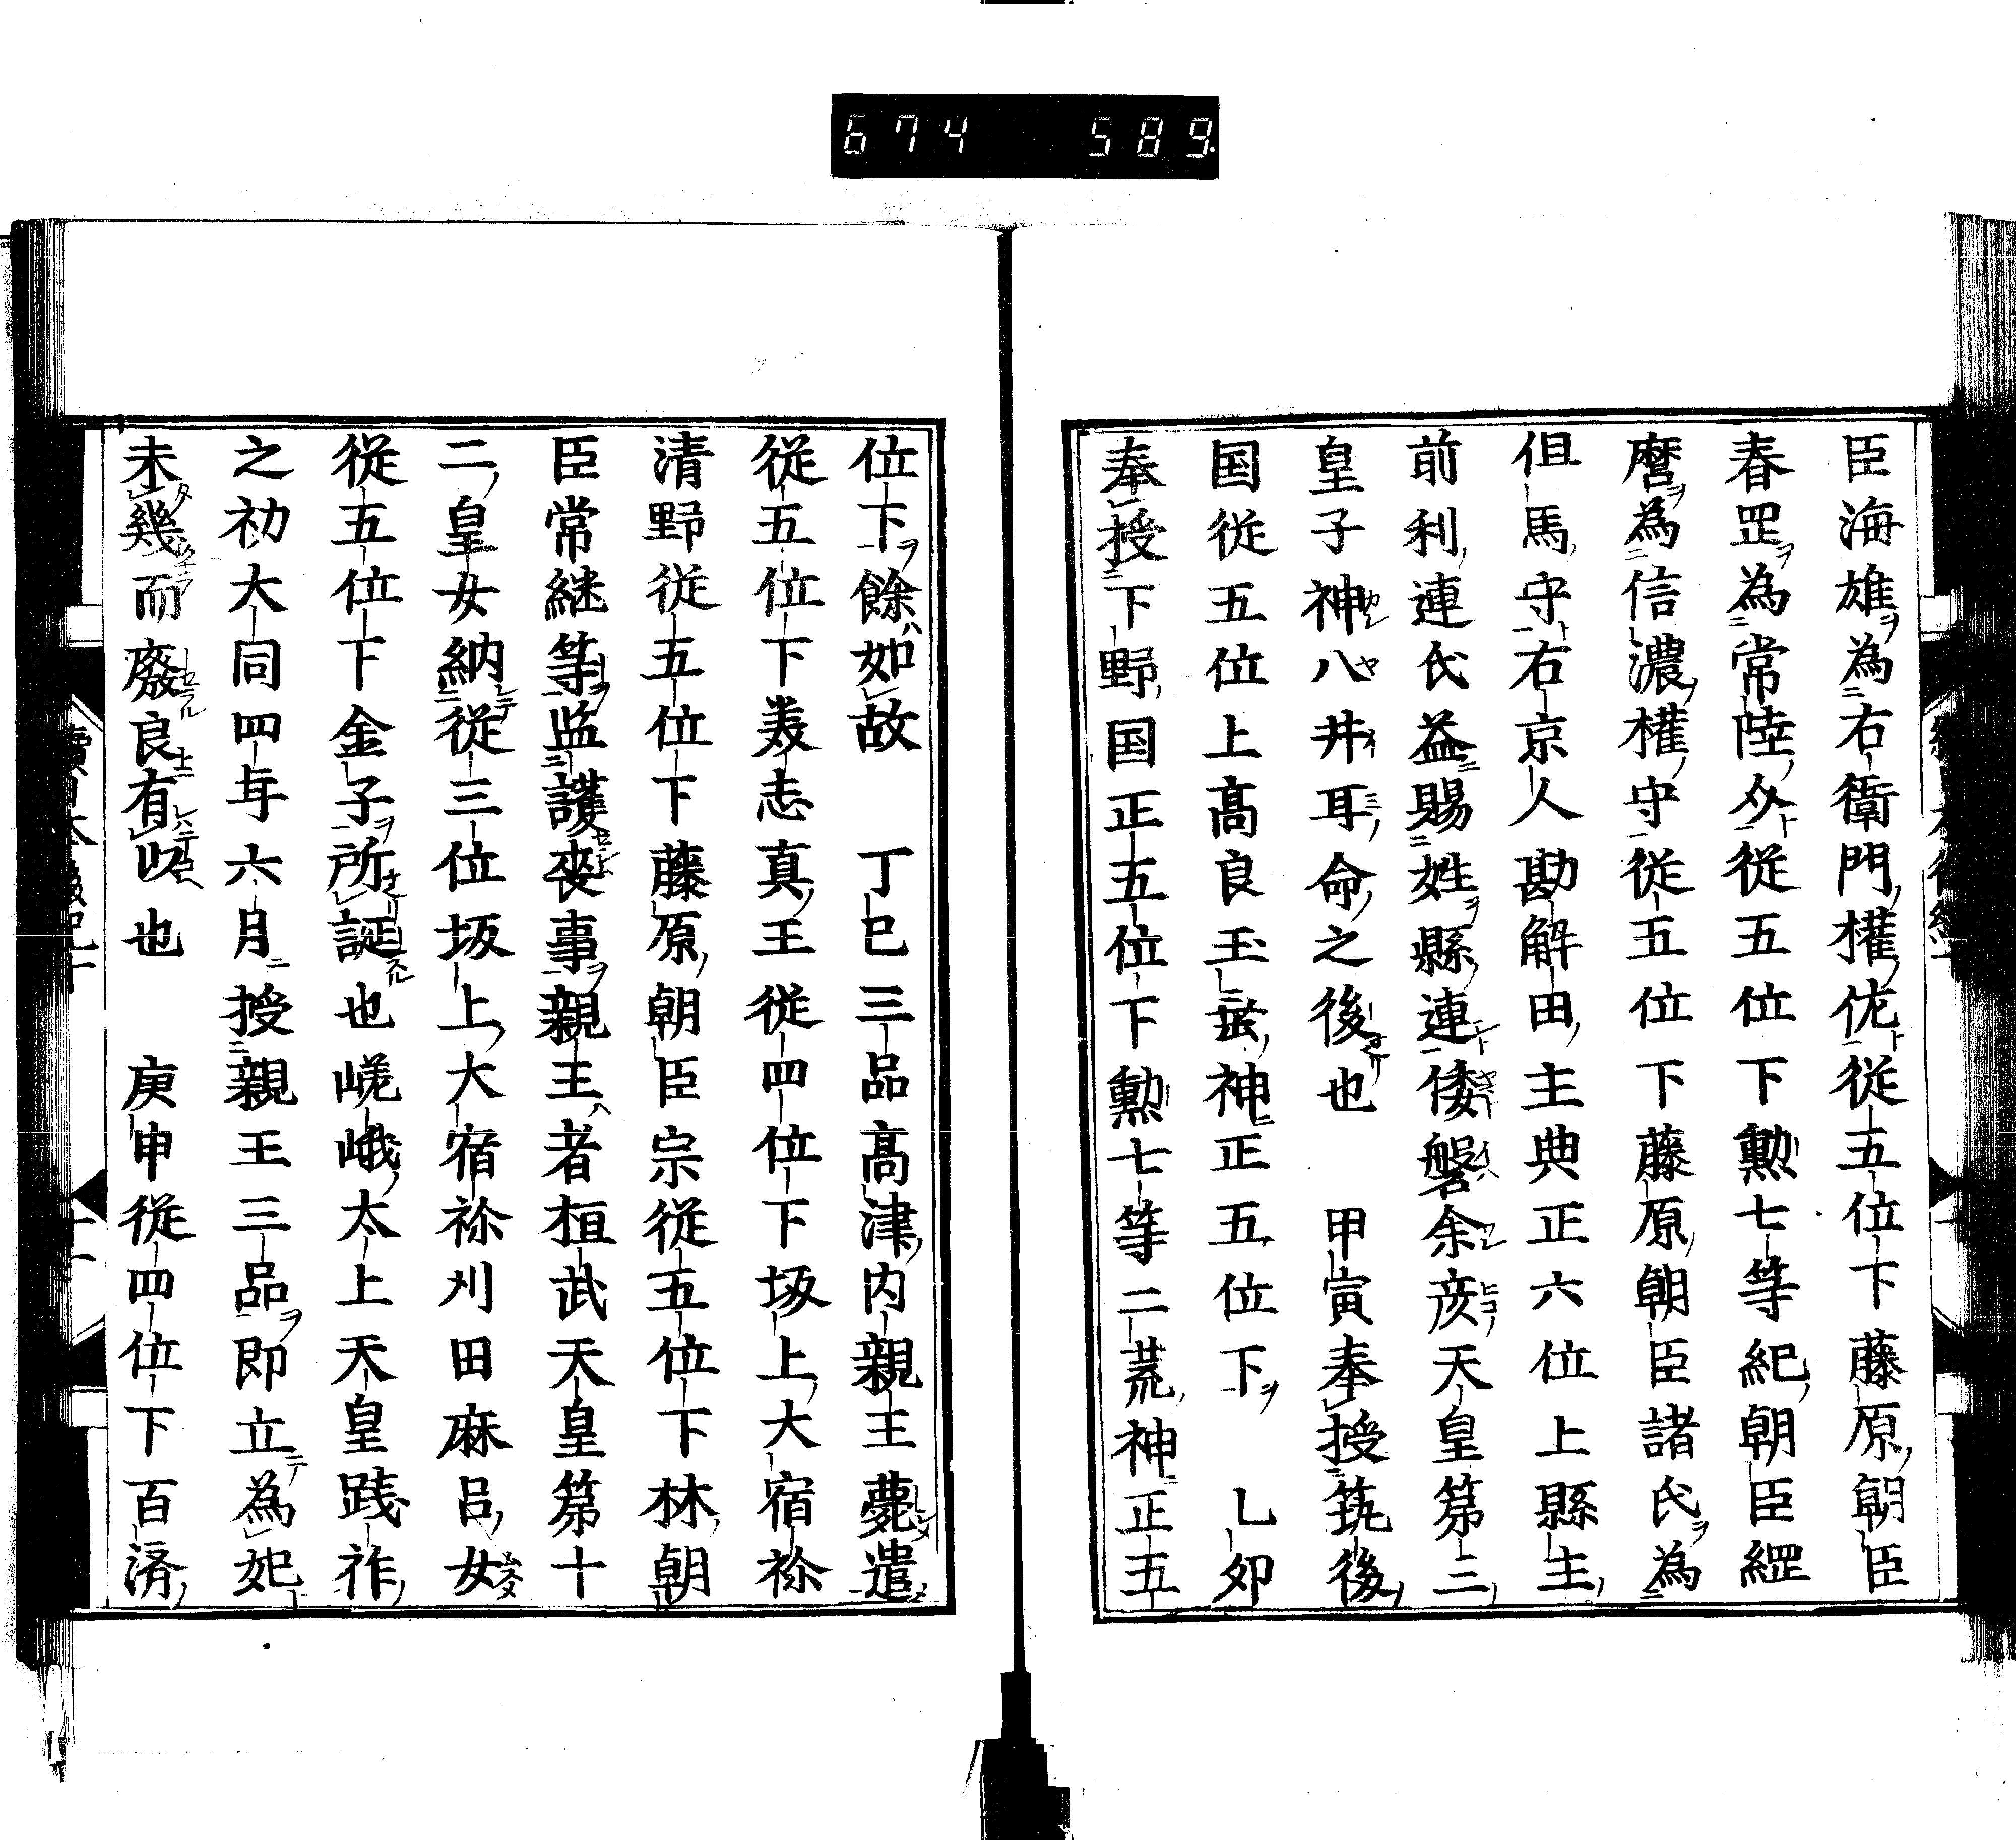 674 589
臣海雄為右衛門權佐從五位下藤原朝臣
春罡為常陸介從五位下勲七等紀朝臣綱
麿為信濃權守從五位下藤原朝臣諸氏為
但馬守右京人勘解田主典正六位上縣主
前利連氏益賜姓縣連倭磐余彦天皇第三
皇子神八井耳命之後也　甲寅奉授筑後
国從五位上髙良玉垂神正五位下　乙夘
奉授下野国正五位下勲七等二荒神正五
位下餘如故　丁巳三品髙津内親王薨遣
從五位下美志真王從四位下坂上大宿祢
清野從五位下藤原朝臣宗從五位下林朝
臣常継等監護喪事親王者桓武天皇第十
二皇女納從三位坂上大宿祢刈田麻呂女
從五位下金子所誕也嵯峨太上天皇踐祚
之初大同四年六月授親王三品即立為妃
未幾而廢良有以也　庚申從四位下百済